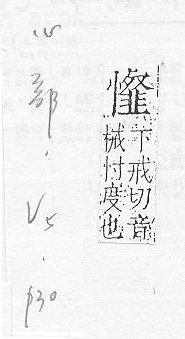 心部.V5.p30
下戒切音
械忖度也